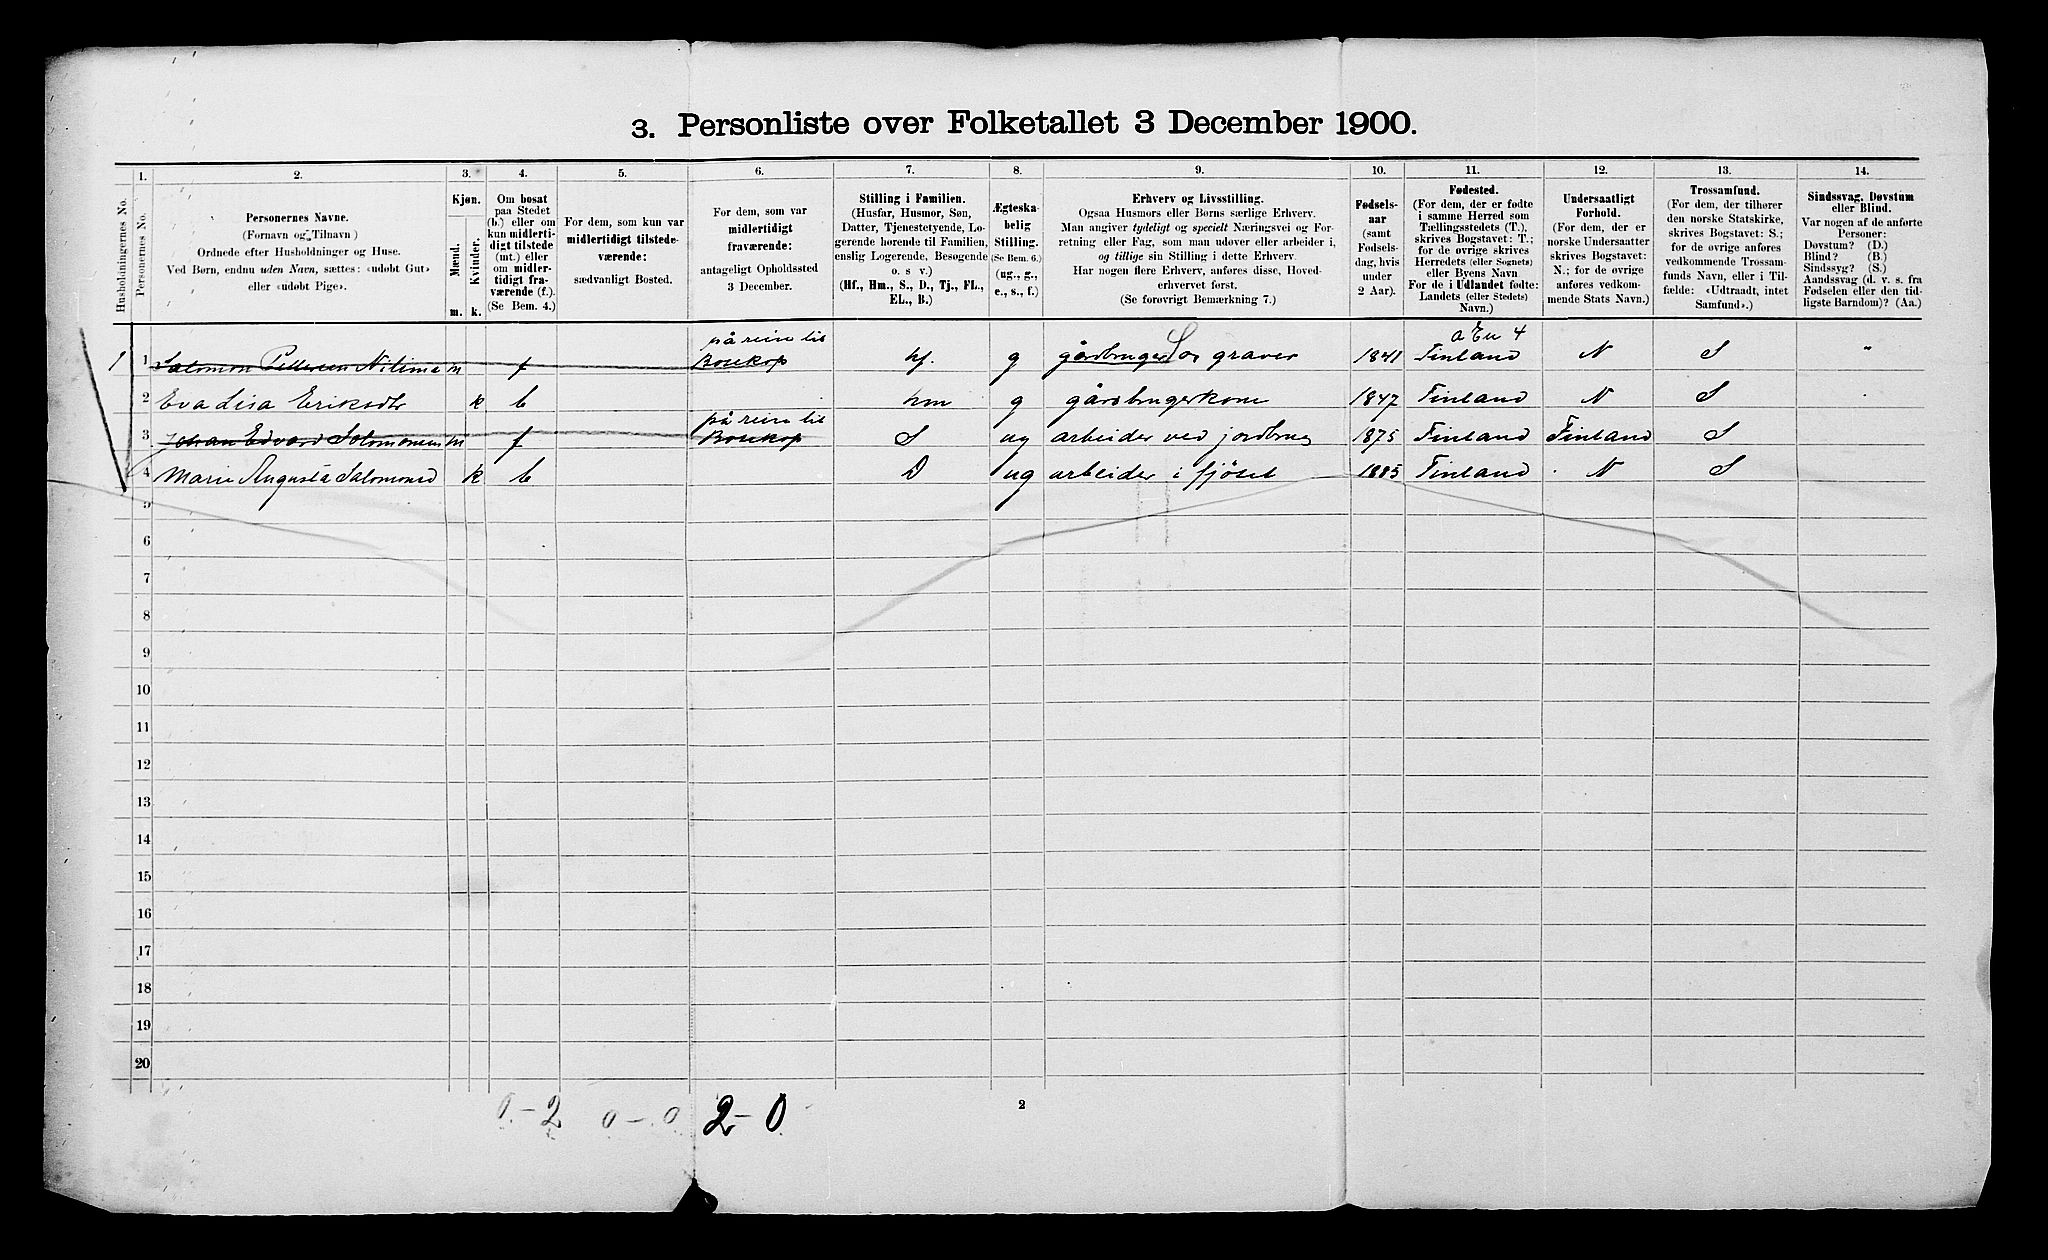 3. Personliste over Folketallet 3 December 1900.
Husholdningernes No.
1.
Personernes No.
2.
Personernes Navne.
(Fornavn og Tilnavn )
Ordnede efter Husholdninger og Huse.
Ved Børn, endnu uden Navn, sættes: «udøbt Gut»
eller «udøbt Pige».
3.
Kjøn.
Mænd.
Kvinder.
m. k.
4.
Om bosat
paa Stedet
(b.) eller om
kun midlerti-
digt tilstede
(mt.) eller
om midler-
tidigt fra-
værende (f.)
(Se Bem. 4.)
5.
For dem, som kun var
midlertidigt tilstede-
værende:
sædvanligt Bosted.
6.
For dem, som var
midlertidigt
fraværende:
antageligt Opholdssted
3 December.
7.
Stilling i Familien.
(Husfar, Husmor, Søn,
Datter, Tjenestetyende, Lo-
gerende hørende til Familien,
enslig Logerende, Besøgende
o. s v.)
(Hf., Hm., S., D., Tj., FL.,
EL., B.)
8.
Ægteska-
belig
Stilling.
(Se Bem. 6.)
(ug., g.,
e., s., f.)
9.
Erhverv og Livsstilling.
Ogsaa Husmors eller Børns særlige Erhverv.
Man angiver tydeligt og specielt Næringsvei og For-
retning eller Fag, som man udøver eller arbeider i,
og tillige sin Stilling i dette Erhverv.
Har nogen flere Erhverv, anføres disse, Hoved-
erhvervet først.
(Se forøvrigt Bemærkning 7.)
10.
Fødsels-
aar
(samt
Fødsels-
dag, hvis
under
2 Aar).
11.
Fødested.
(For dem, der er fødte
i samme Herred som
Tællingsstedets (T.),
skrives Bogstavet: T.;
for de øvrige skrives
Herredets (eller Sognets)
eller Byens Navn
For de i Udlandet fødte:
Landets (eller Stedets)
Navn.)
12.
Undersaatligt
Forhold.
(For dem, der er
norske Undersaatter
skrives Bogstavet:
N.; for de øvrige
anføres vedkom-
mende Stats Navn.)
13.
Trossamfund.
(For dem, der tilhører
den norske Statskirke,
skrives Bogstavet: S.;
for de øvrige anføres
vedkommende Trossam-
funds Navn, eller i Til-
fælde: «Udtraadt, intet
Samfund».)
14.
Sindssvag, Døvstum
eller Blind.
Var nogen af de anførte
Personer:
Døvstum? (D.)
Blind? (B.)
Sindssyg? (S.)
Aandssvag (d. v. s. fra
Fødselen eller den tid-
ligste Barndom)? (Aa.)
på reise til 4
1 1 Salomon Pettersen Nilima m f Bosekop hf. g gårdbruger graver 1841 Finland N S "
2 Eva Lisa Eriksdtr k b hm g gårdbrugerkone 1847 Finland N S
på reise til
3 Johan Edvard Salomonsen m f Bosekop S ug arbeider ved jordbrug 1875 Finland Finland S
4 Marie Augusta Salomonsd k b D ug arbeider i fjöset 1885 Finland N S
5
6
7
8
9
10
11
12
13
14
15
16
17
18
19
20
0-2 0-0 2-0
2